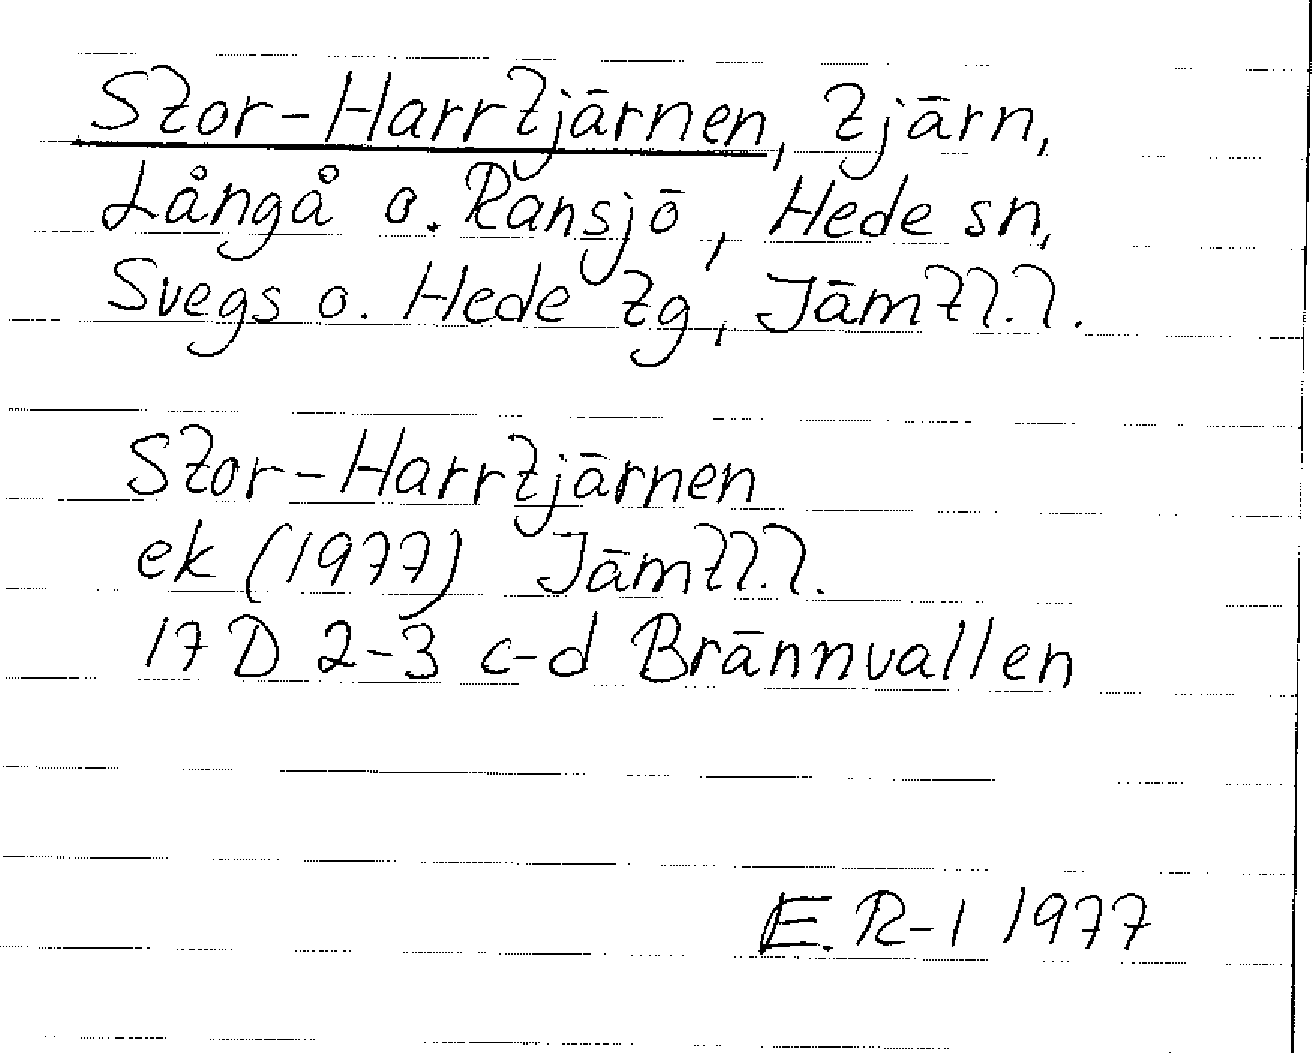 Stor-Harrtjärnen, tjärn,
Långå o. Ransjö, Hede sn,
Svegs o. Hede tg, Jämtl.l.
Stor-Harrtjärnen
ek (1977) Jämtl.l.
17 D 2-3 c-d Brännvallen
E.R-l 1977